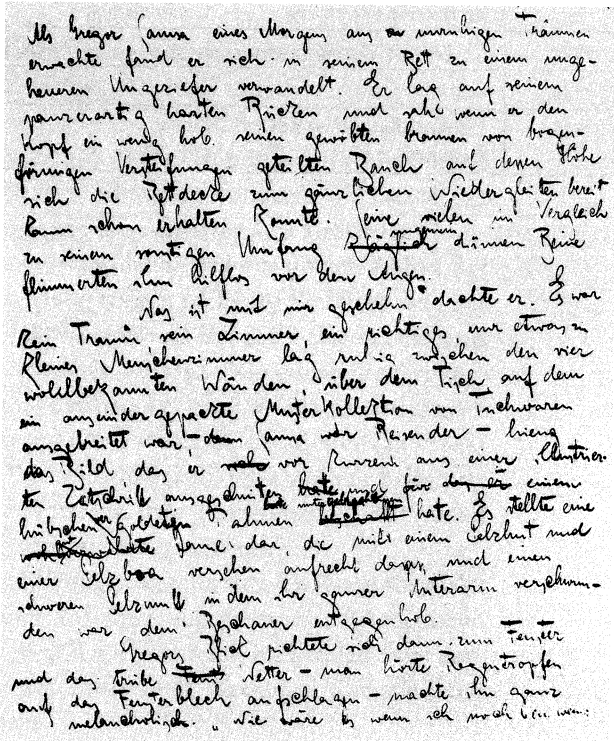 Als Gregor Samsa eines Morgens aus unruhigen Träumen
erwachte fand er sich in seinem Bett zu einem unge-
heueren Ungeziefer verwandelt. Er lag auf seinem
panzerartig harten Rücken und sah wenn er den
Kopf ein wenig hob seinen gewölbten braunen von bogen-
förmigen Versteifungen geteilten Bauch auf dessen Höhe
sich die Bettdecke zum gänzlichen Niedergleiten bereit
kaum schon erhalten konnte. Seine vielen im Vergleich
zu seinem sonstigen Umfang kläglich dünnen Beine
flimmerten ihm hilflos vor den Augen.
Was ist mit mir geschehn" dachte er. Es war
kein Traum, sein Zimmer, ein richtiges, nur etwas zu
kleines Menschenzimmer lag ruhig zwischen den vier
wohlbekannten Wänden, über dem Tisch, auf dem
ein auseinandergepackte Musterkollektion von Tuchwaren
ausgebreitet war – Samsa war Reisender – hieng
das Bild das er vor kurzem aus einer illustrier-
ten Zeitschrift ausgeschnitten hatte und in einem
hübschen vergoldeten Rahmen untergebracht hatte. Es stellte eine
Dame dar, die mit einem Pelzhut und
einer Pelzboa versehen aufrecht dasass und einen
schweren Pelzmuff in dem ihr ganzer Unterarm verschwun-
den war dem Beschauer entgegenhob.
Gregors Blick richtete sich dann zum Fenster
und das trübe Wetter – man hörte Regentropfen
auf das Fensterblech aufschlagen – machte ihn ganz
melancholisch. „Wie wäre es wenn ich noch ein wenig